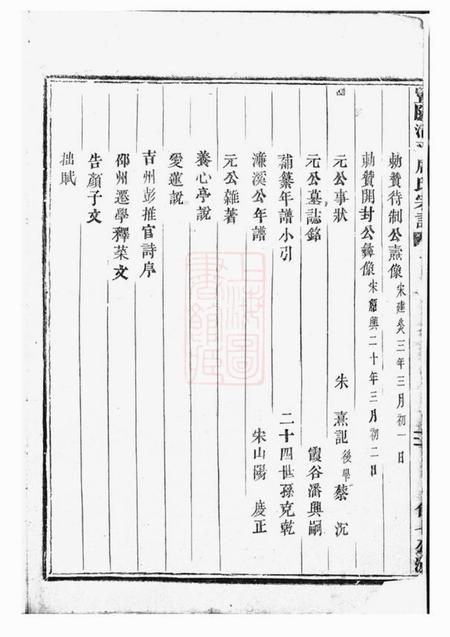 周氏宗譜
勅贊待制公燾像 宋建炎三年三月初一日
勅贊開封公彝像 宋紹興二十年三月初二日
元公事狀 朱熹記 後學蔡沉
元公墓誌銘 霞谷潘興嗣
補纂年譜小引 二十四世孫克乾
濂溪公年譜 宋山陽 度正
元公雜著
養心亭說
愛蓮說
吉州彭推官詩序
邵州遷學釋菜文
告顏子文
拙賦
上海圖書館藏